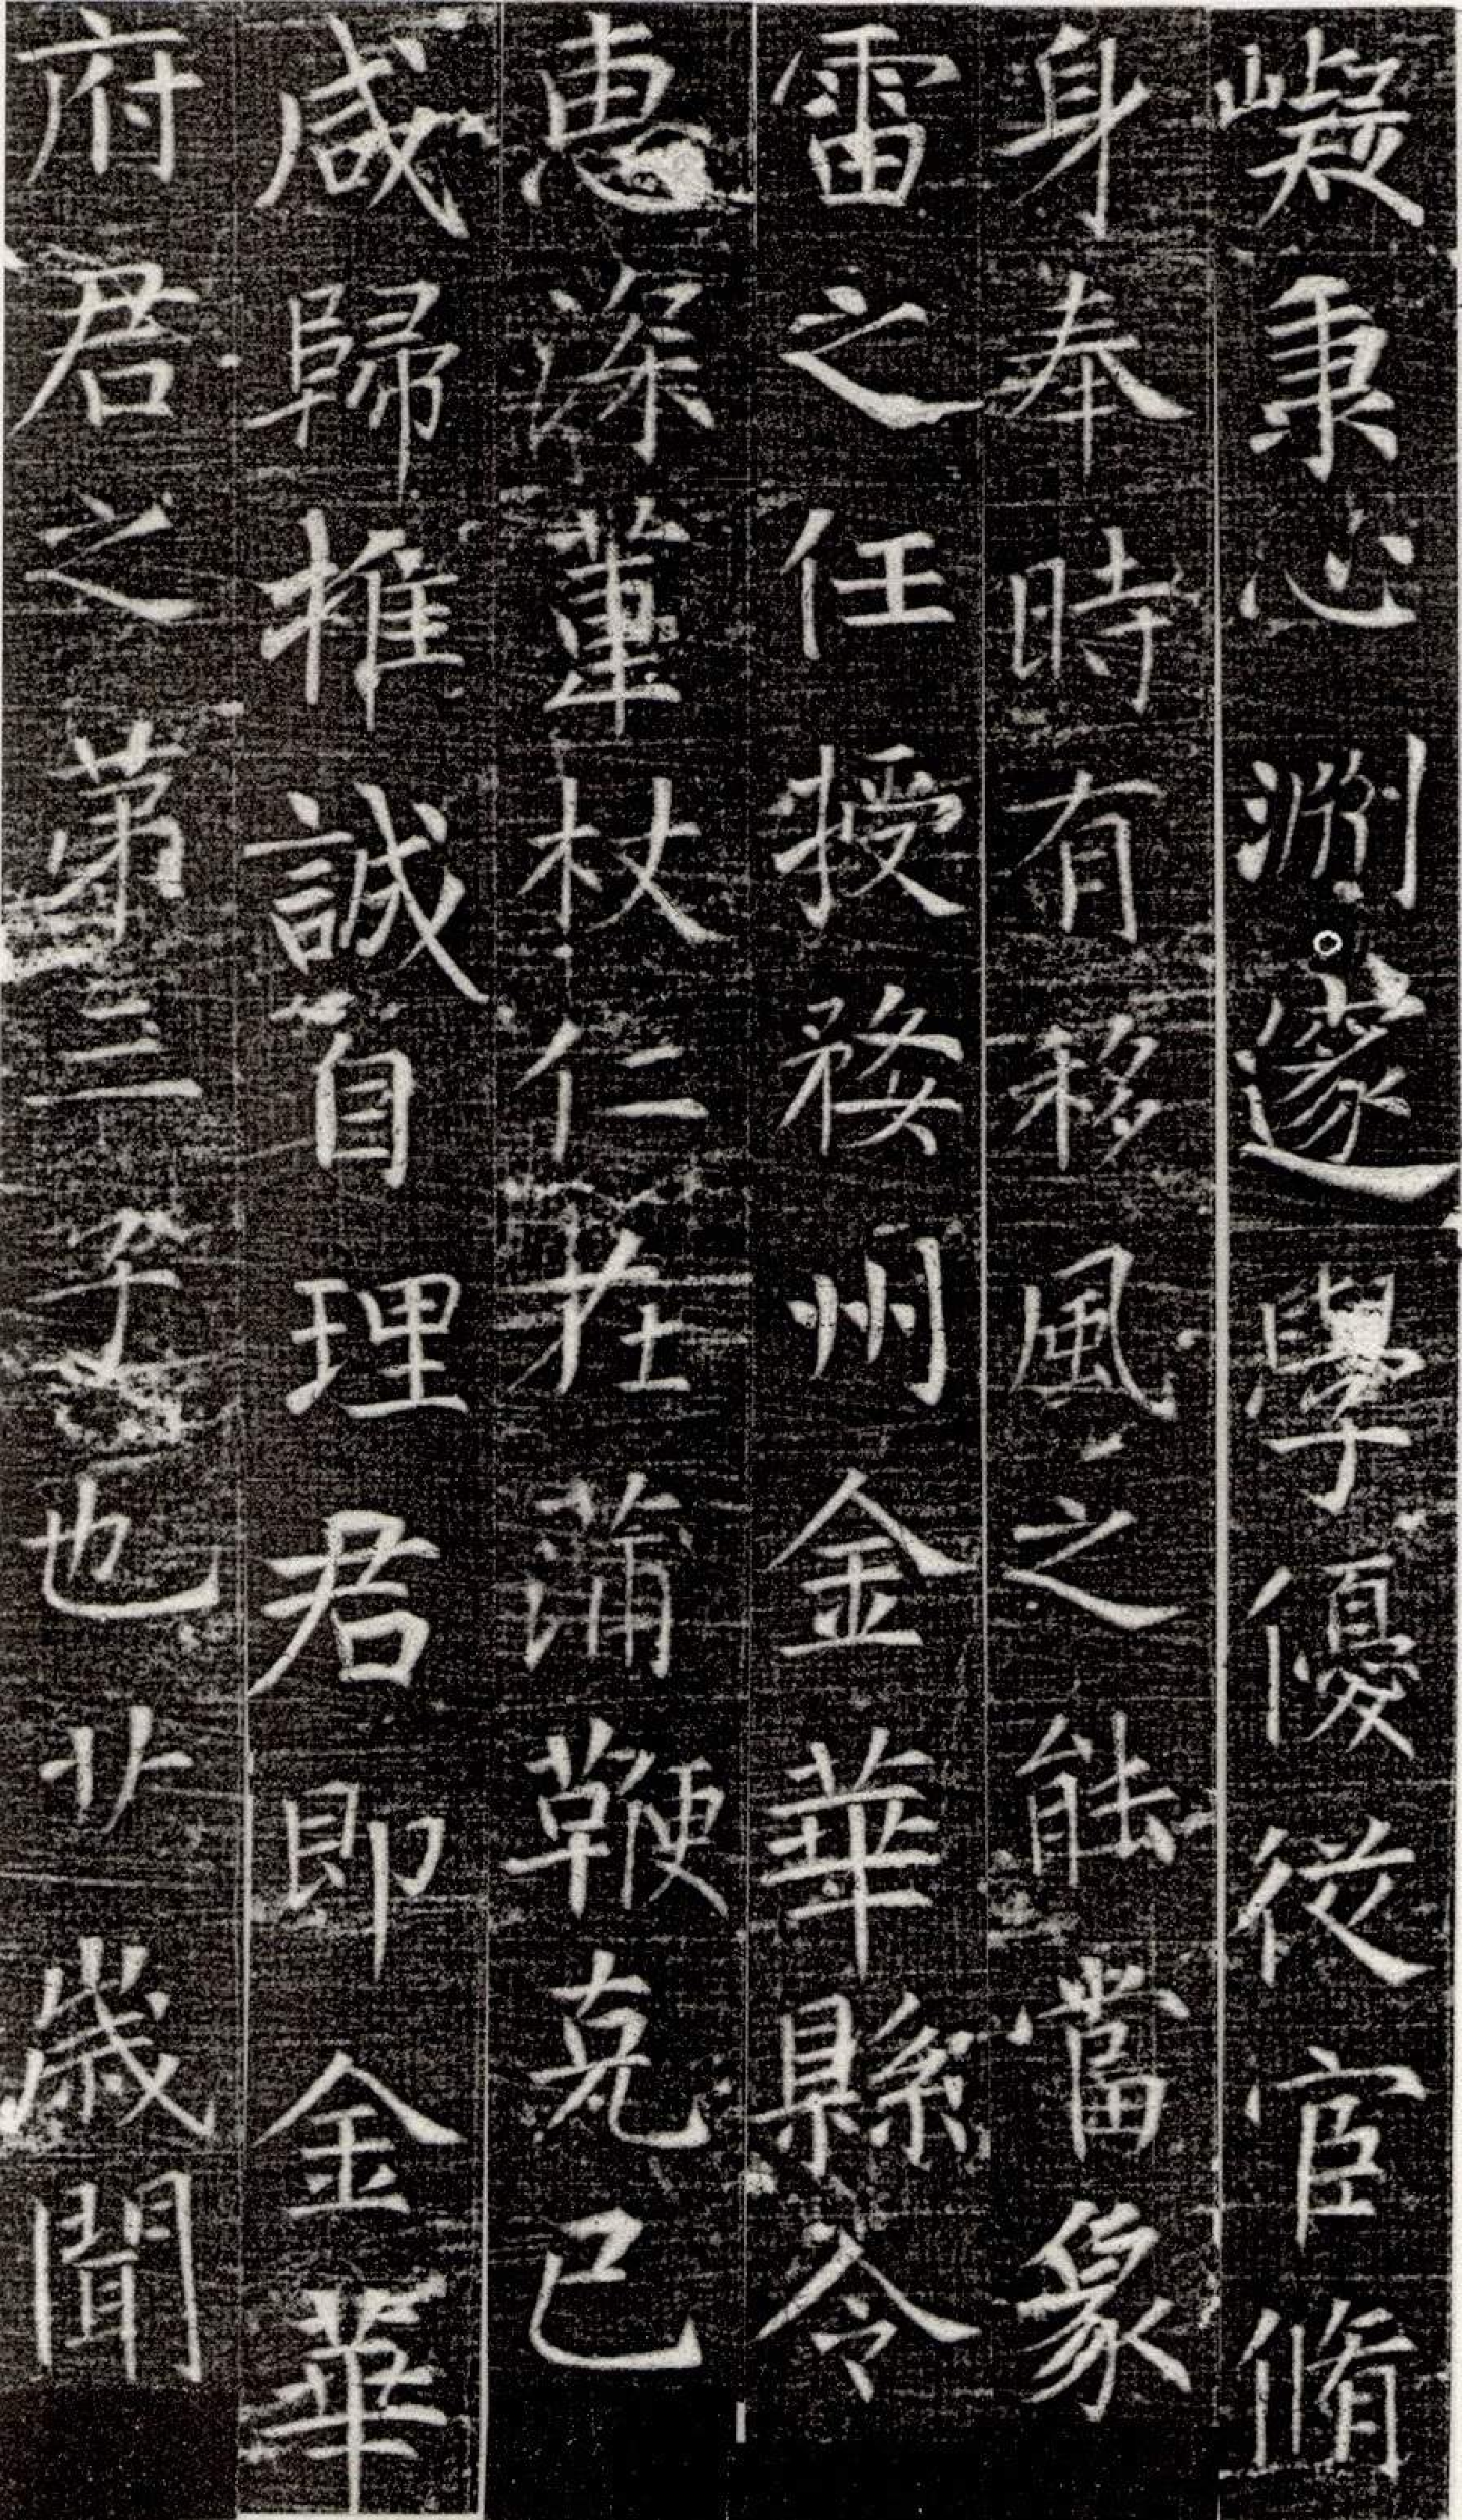 嶷秉心淵邃學優從宦脩
身奉時有移風之能當象
雷之任授婺州金華縣令
惠深葷杖仁在蒲鞭克己
咸歸推誠自理君即金華
府君之第三子也廿歲聞